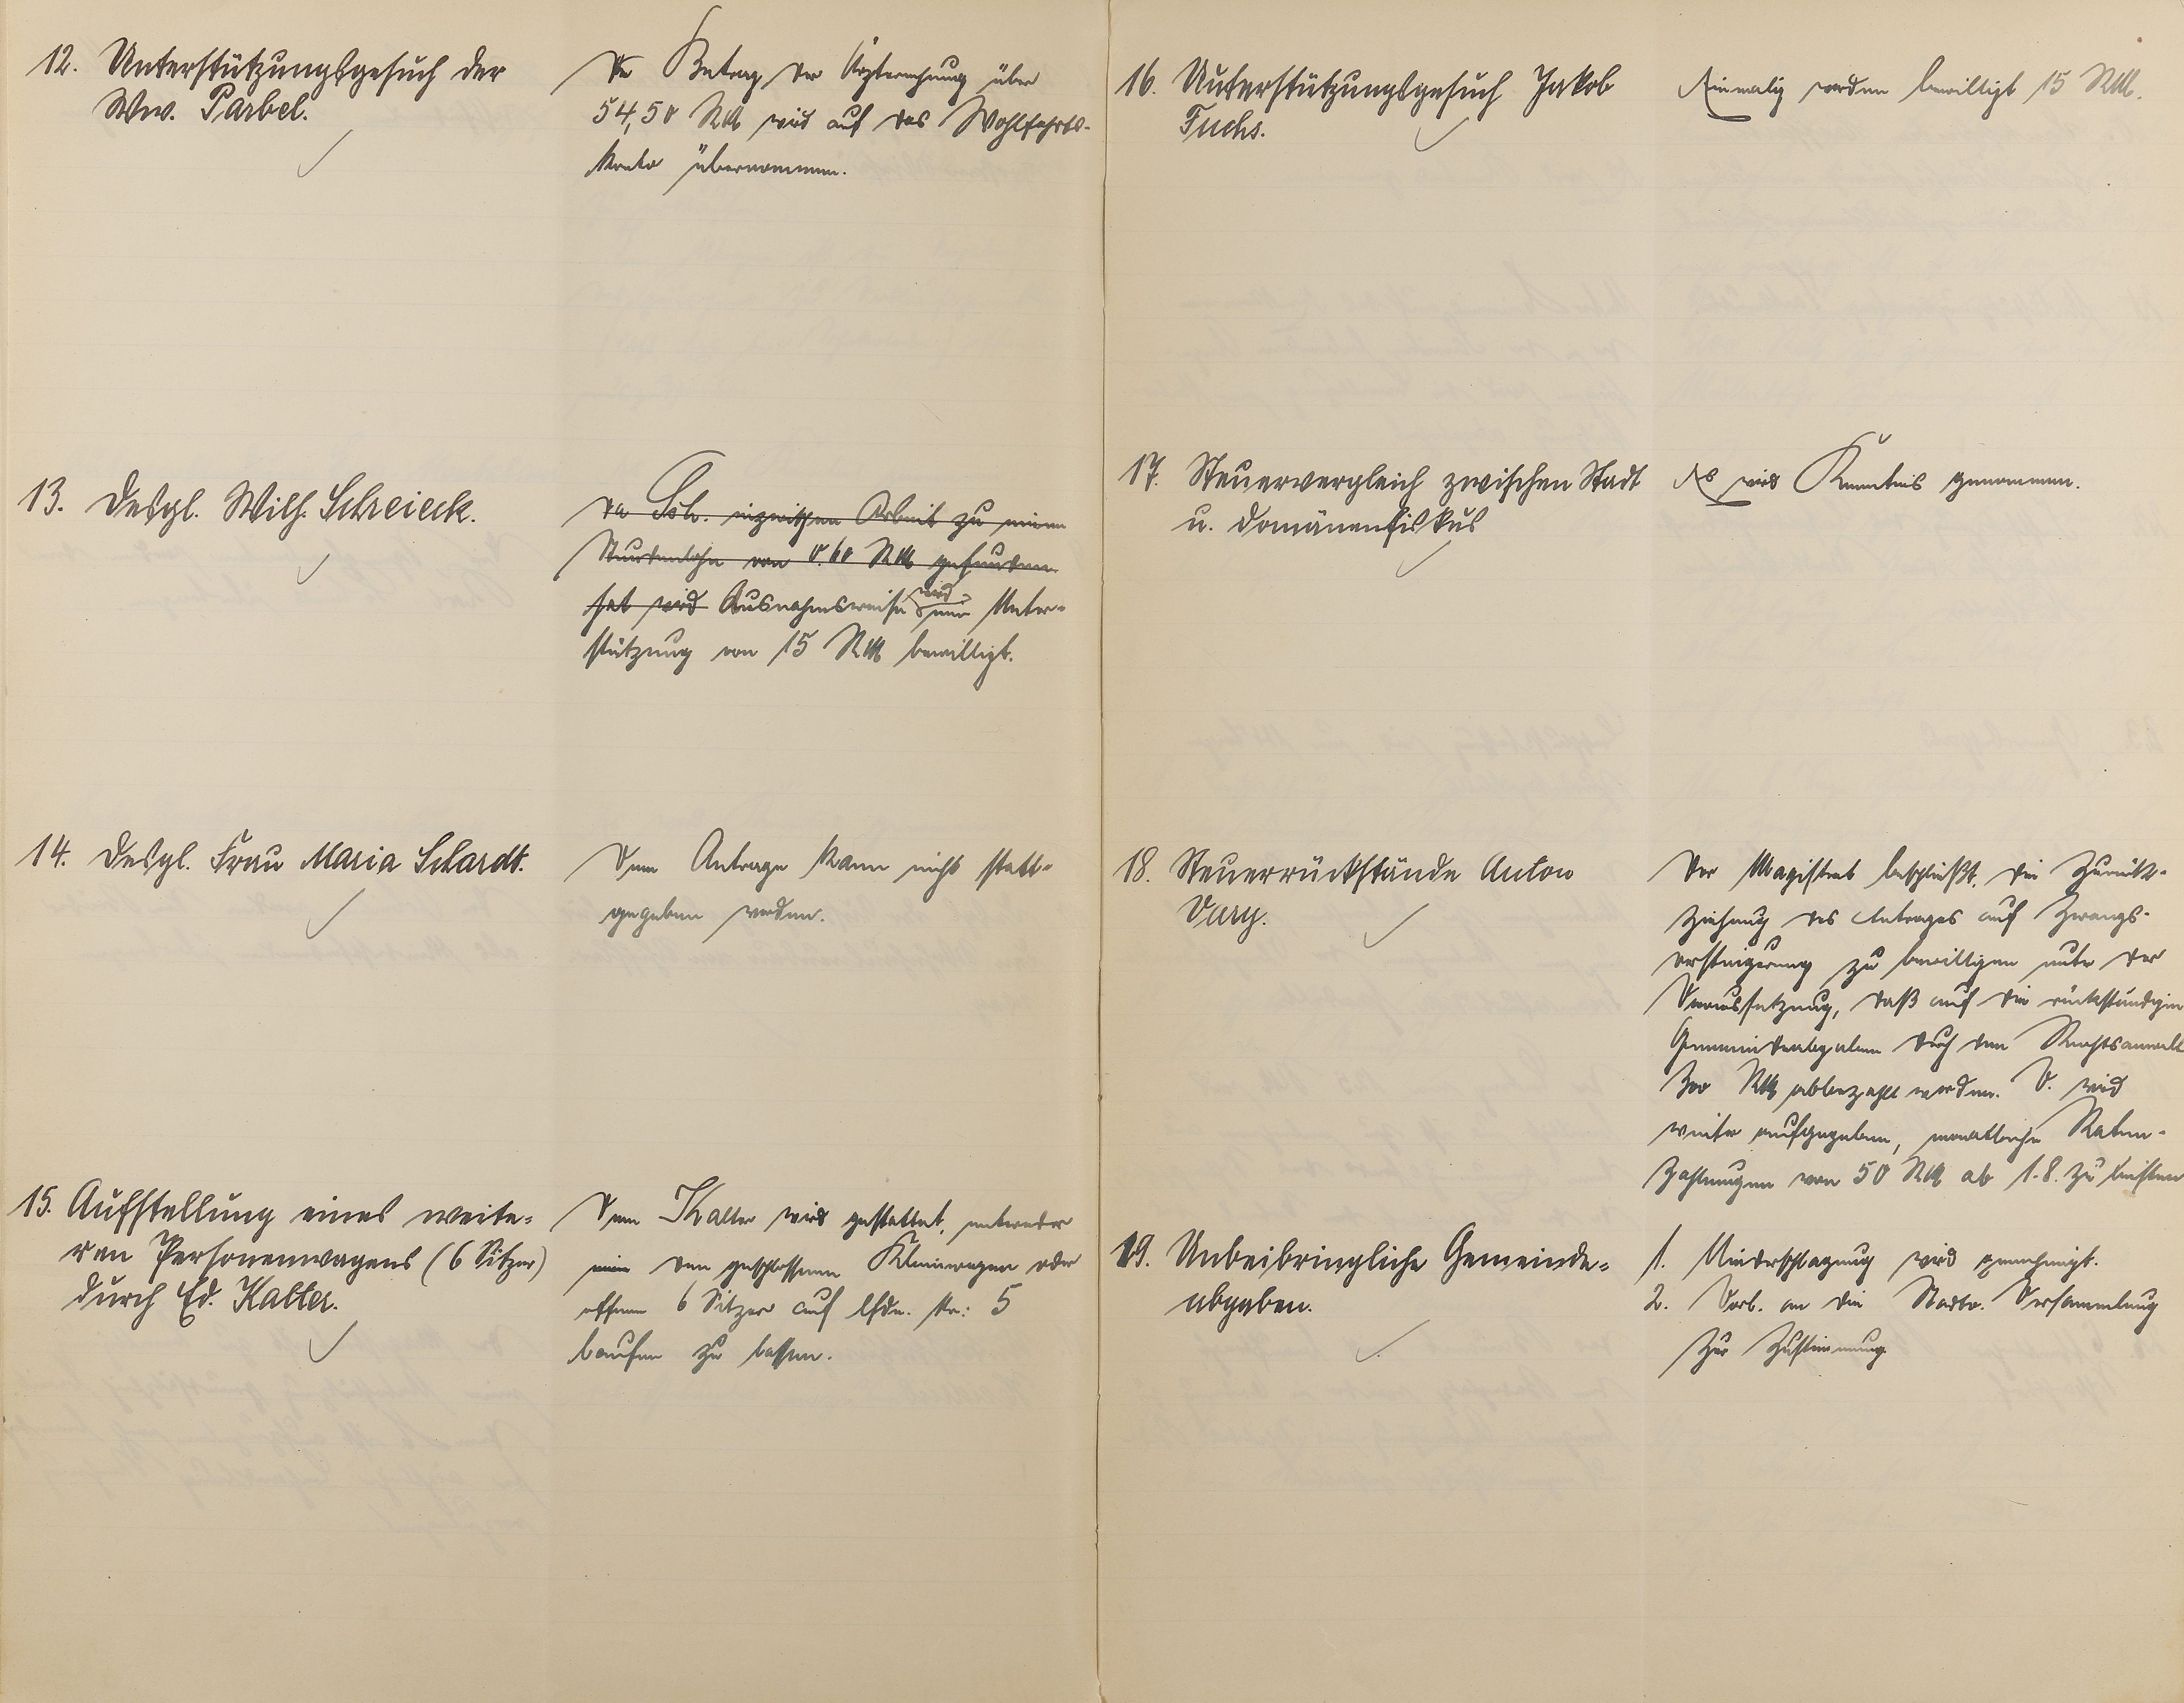 12. Unterstützungsgesuch der
Ww. Parbel.
Der Betrag der Arztrechnung über
54,50 RM wird auf das Wohlfahrts-
konto übernommen.
13. Desgl. Wilh. Schreieck.
Da Sch. inzwischen Arbeit zu einem
Stundenlohn von 0.60 RM gefunden
hat wird Ausnahmsweise wird eine Unter-
stützung von 15 RM bewilligt.
14. Desgl. Frau Maria Schardt.
Dem Antrage kann nicht statt-
gegeben werden.
15. Aufstellung eines weite-
ren Personenwagens (6 Sitzer)
durch Ed. Kalter.
Dem Kalter wird gestattet, entweder
den geschlossenen Kleinwagen oder
offenen 6 Sitzer auf lfde. Nr.: 5
laufen zu lassen.
16. Unterstützungsgesuch Jakob
Fuchs.
Einmalig werden bewilligt 15 RM.
17. Steuervergleich zwischen Stadt
u. Domänenfiskus
Es wird Kenntnis genommen.
18. Steuerrückstände Anton
Vary.
Der Magistrat beschließt, die Zurück-
ziehung des Antrages auf Zwangs-
versteigerung zu bewilligen unter der
Voraussetzung, daß auf die rückständigen
Gemeindeabgaben durch den Rechtsanwalt
RM abbezahlt werden. V. wird
weiter aufgegeben, monatliche Raten-
zahlungen von 50 RM ab 1.8. zu leisten
19. Unbeibringliche Gemeinde-
abgaben.
1. Niederschlagung wird genehmigt.
2. Vorl. an die Stadtv. Versammlung
zur Zustimmung